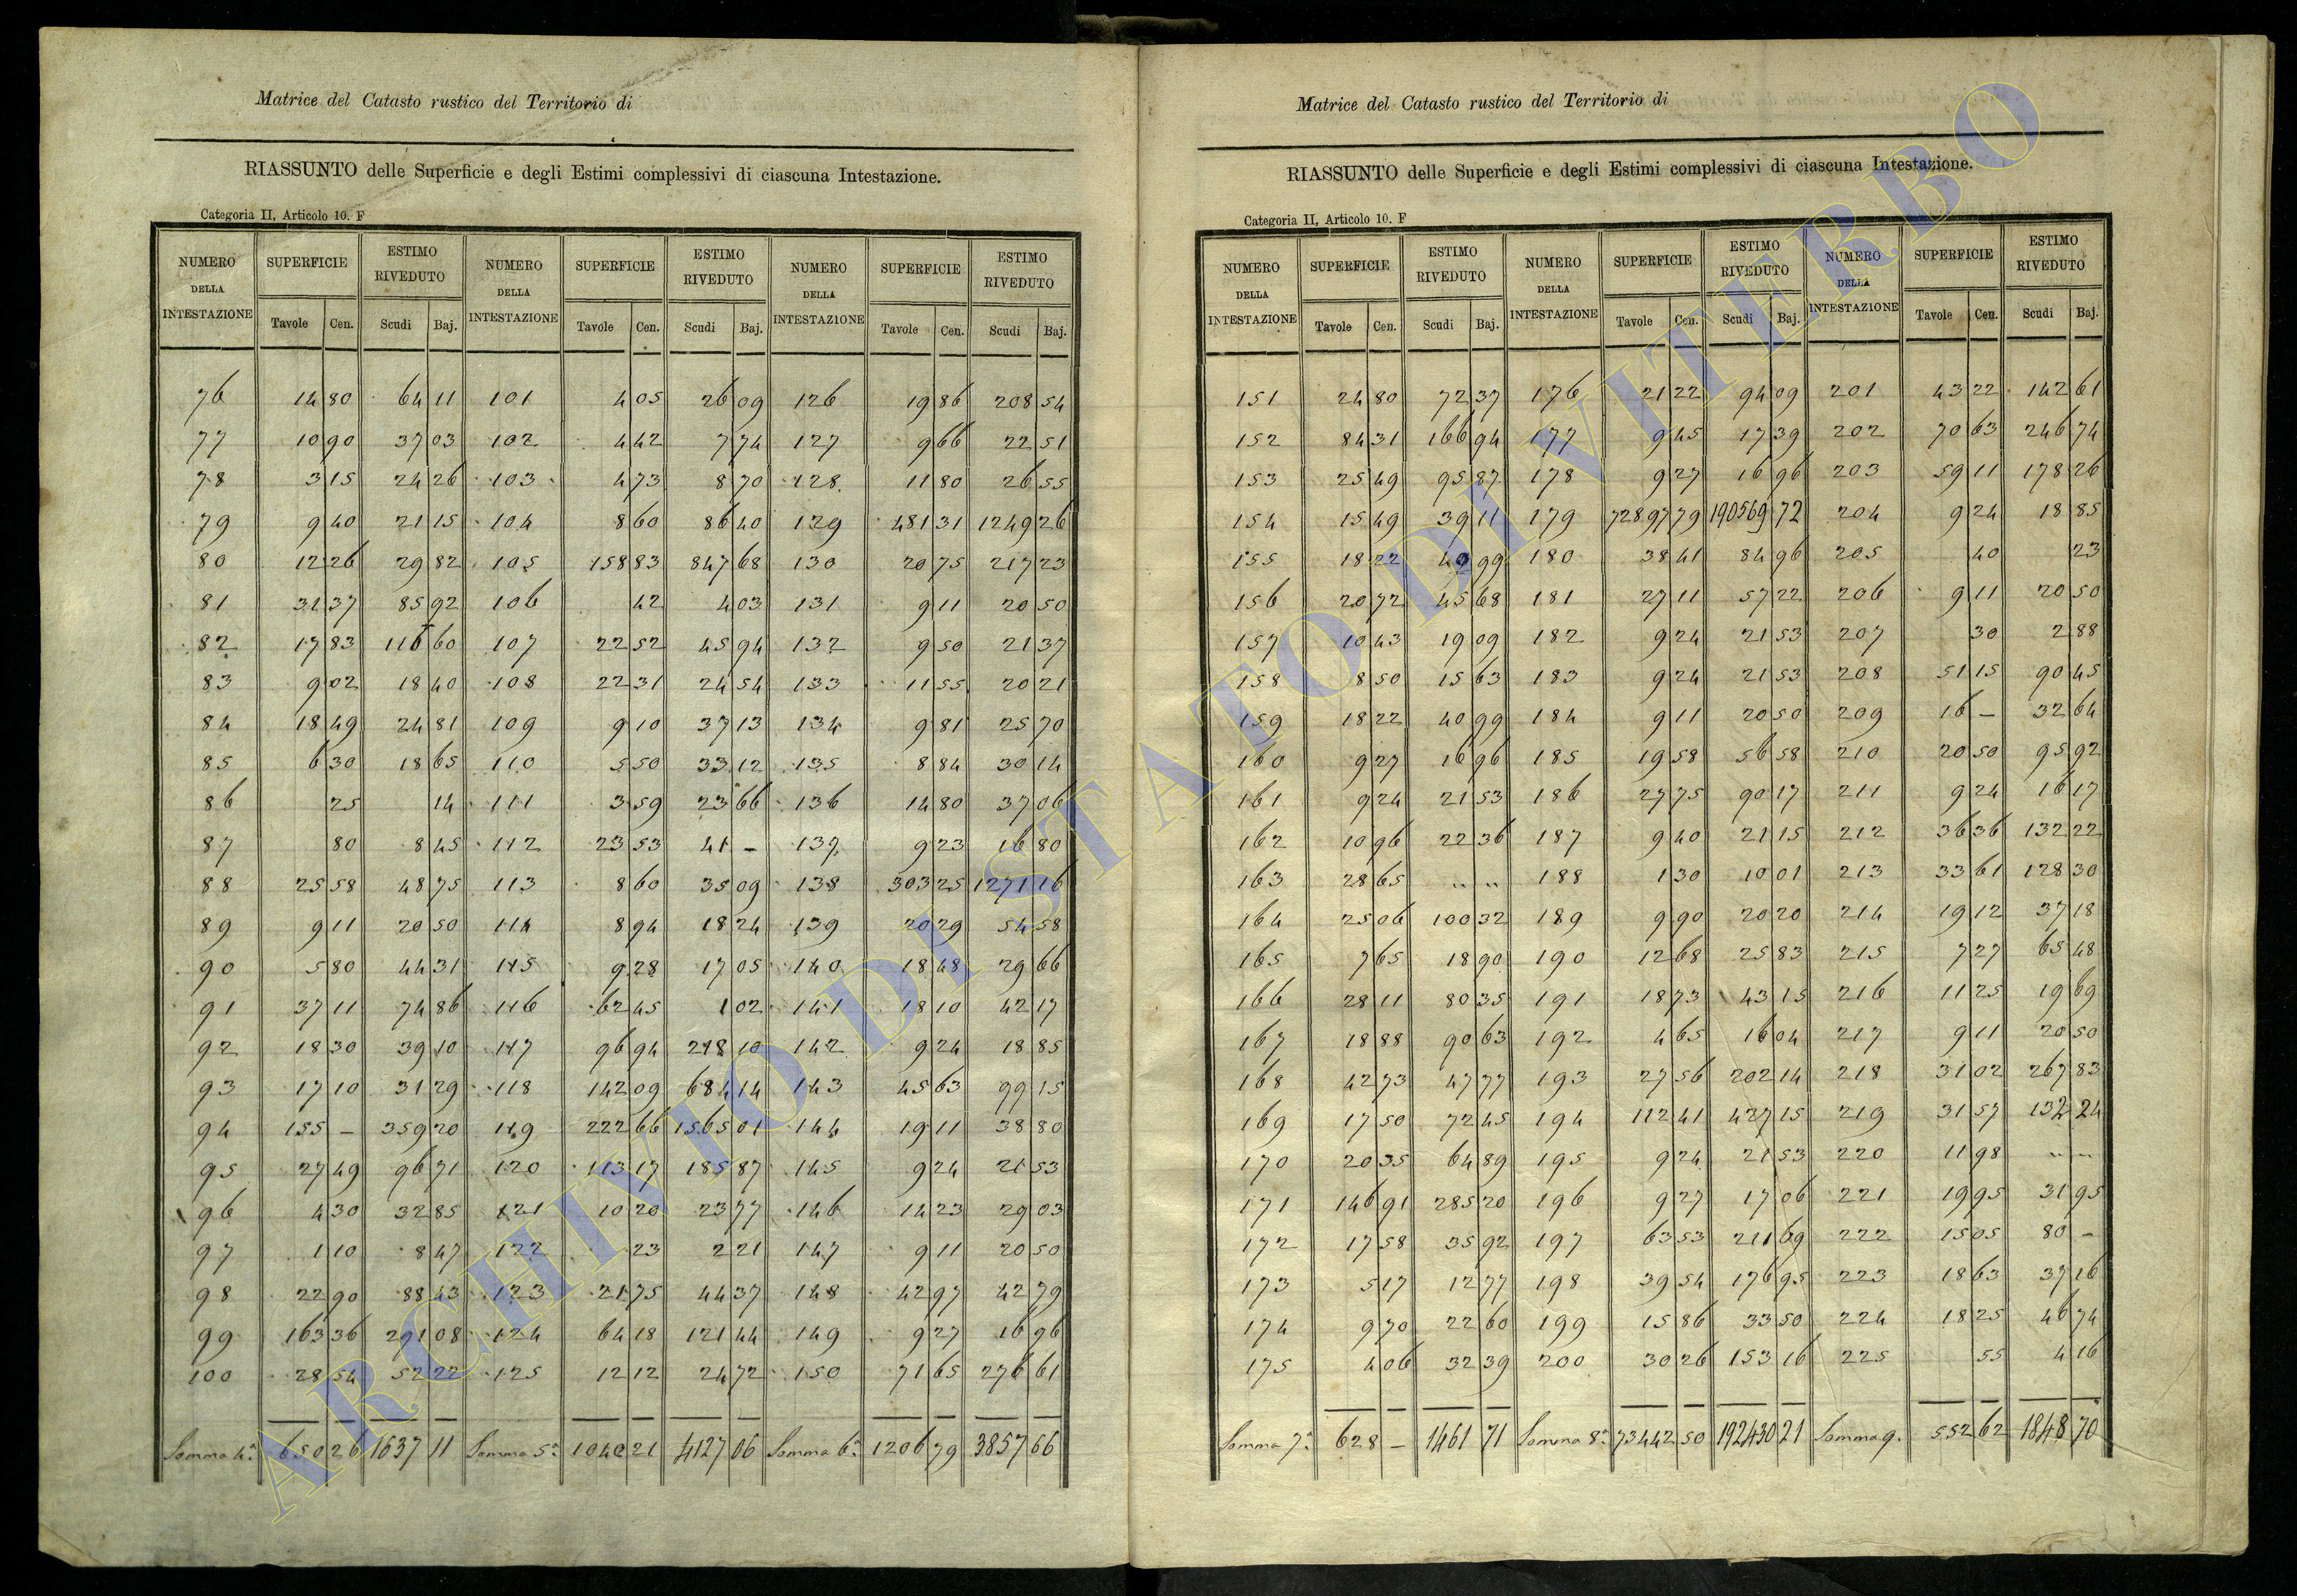 Matrice del Catasto rustico del Territorio di
RIASSUNTO delle Superficie e degli Estimi complessivi di ciascuna Intestazione.
Categoria II, Articolo 10. F
NUMERO DELLA INTESTAZIONE SUPERFICIE ESTIMO RIVEDUTO NUMERO DELLA INTESTAZIONE SUPERFICIE ESTIMO RIVEDUTO NUMERO DELLA INTESTAZIONE SUPERFICIE ESTIMO RIVEDUTO
Tavole Cen. Scudi Baj. Tavole Cen. Scudi Baj. Tavole Cen. Scudi Baj.
76 14 80 64 11 101 4 05 26 09 126 19 86 208 54
77 10 90 37 03 102 4 42 7 74 127 9 66 22 51
78 3 15 24 26 103 4 73 8 70 128 11 80 26 55
79 9 40 21 15 104 8 60 86 40 129 481 31 1249 26
80 12 26 29 82 105 158 83 847 68 130 20 75 217 23
81 31 37 85 92 106 42 4 03 131 9 11 20 50
82 17 83 116 60 107 22 52 45 94 132 9 50 21 37
83 9 02 18 40 108 22 31 24 54 133 11 55 20 21
84 18 49 24 81 109 9 10 37 13 134 9 81 25 70
85 6 30 18 65 110 5 50 33 12 135 8 84 30 14
86 25 14 111 3 59 23 66 136 14 80 37 06
87 80 8 45 112 23 53 41 – 137 9 23 16 80
88 25 58 48 75 113 8 60 35 09 138 303 25 1271 16
89 9 11 20 50 114 8 94 18 24 139 20 29 54 58
90 5 80 44 31 115 9 28 17 05 140 18 48 29 66
91 37 11 74 86 116 62 45 1 02 141 18 10 42 17
92 18 30 39 10 117 96 94 218 10 142 9 24 18 85
93 17 10 31 29 118 142 09 684 14 143 45 63 99 15
94 155 – 359 20 119 222 66 1565 01 144 19 11 38 80
95 27 49 96 71 120 113 17 185 87 145 9 24 21 53
96 4 30 32 85 121 10 20 23 77 146 14 23 29 03
97 1 10 8 47 122 23 2 21 147 9 11 20 50
98 22 90 88 43 123 21 75 44 37 148 42 97 42 79
99 163 36 291 08 124 64 18 121 44 149 9 27 16 96
100 28 54 52 22 125 12 12 24 72 150 71 65 276 61
Somma 4ª 650 26 1637 11 Somma 5ª 1040 21 4127 06 Somma 6ª 1206 79 3857 66
Matrice del Catasto rustico del Territorio di
RIASSUNTO delle Superficie e degli Estimi complessivi di ciascuna Intestazione.
Categoria II, Articolo 10. F
NUMERO DELLA INTESTAZIONE SUPERFICIE ESTIMO RIVEDUTO NUMERO DELLA INTESTAZIONE SUPERFICIE ESTIMO RIVEDUTO NUMERO DELLA INTESTAZIONE SUPERFICIE ESTIMO RIVEDUTO
Tavole Cen. Scudi Baj. Tavole Cen. Scudi Baj. Tavole Cen. Scudi Baj.
151 24 80 72 37 176 21 22 94 09 201 43 22 142 61
152 84 31 166 94 177 9 45 17 39 202 70 63 246 74
153 25 49 95 87 178 9 27 16 96 203 59 11 178 26
154 15 49 39 11 179 72897 79 190569 72 204 9 24 18 85
155 18 22 40 99 180 38 41 84 96 205 40 23
156 20 72 45 68 181 27 11 57 22 206 9 11 20 50
157 10 43 19 09 182 9 24 21 53 207 30 2 88
158 8 50 15 63 183 9 24 21 53 208 51 15 90 45
159 18 22 40 99 184 9 11 20 50 209 16 – 32 64
160 9 27 16 96 185 19 58 56 58 210 20 50 95 92
161 9 24 21 53 186 27 75 90 17 211 9 24 16 17
162 10 96 22 36 187 9 40 21 15 212 36 36 132 22
163 28 65 .. .. 188 1 30 10 01 213 33 61 128 30
164 25 06 100 32 189 9 90 20 20 214 19 12 37 18
165 7 65 18 90 190 12 68 25 83 215 7 27 65 48
166 28 11 80 35 191 18 73 43 15 216 11 25 19 69
167 18 88 90 63 192 4 65 16 04 217 9 11 20 50
168 42 73 47 77 193 27 56 202 14 218 31 02 267 83
169 17 50 72 45 194 112 41 427 15 219 31 57 132 24
170 20 35 64 89 195 9 24 21 53 220 11 98 .. ..
171 146 91 285 20 196 9 27 17 06 221 19 95 31 95
172 17 58 35 92 197 63 53 211 69 222 15 05 80 –
173 5 17 12 77 198 39 54 176 95 223 18 63 37 16
174 9 70 22 60 199 15 86 33 50 224 18 25 46 74
175 4 06 32 39 200 30 26 153 16 225 55 4 16
Somma 7ª 628 – 1461 71 Somma 8ª 73442 50 192430 21 Somma 9. 552 62 1848 70
ARCHIVIO DI STATO DI VITERBO